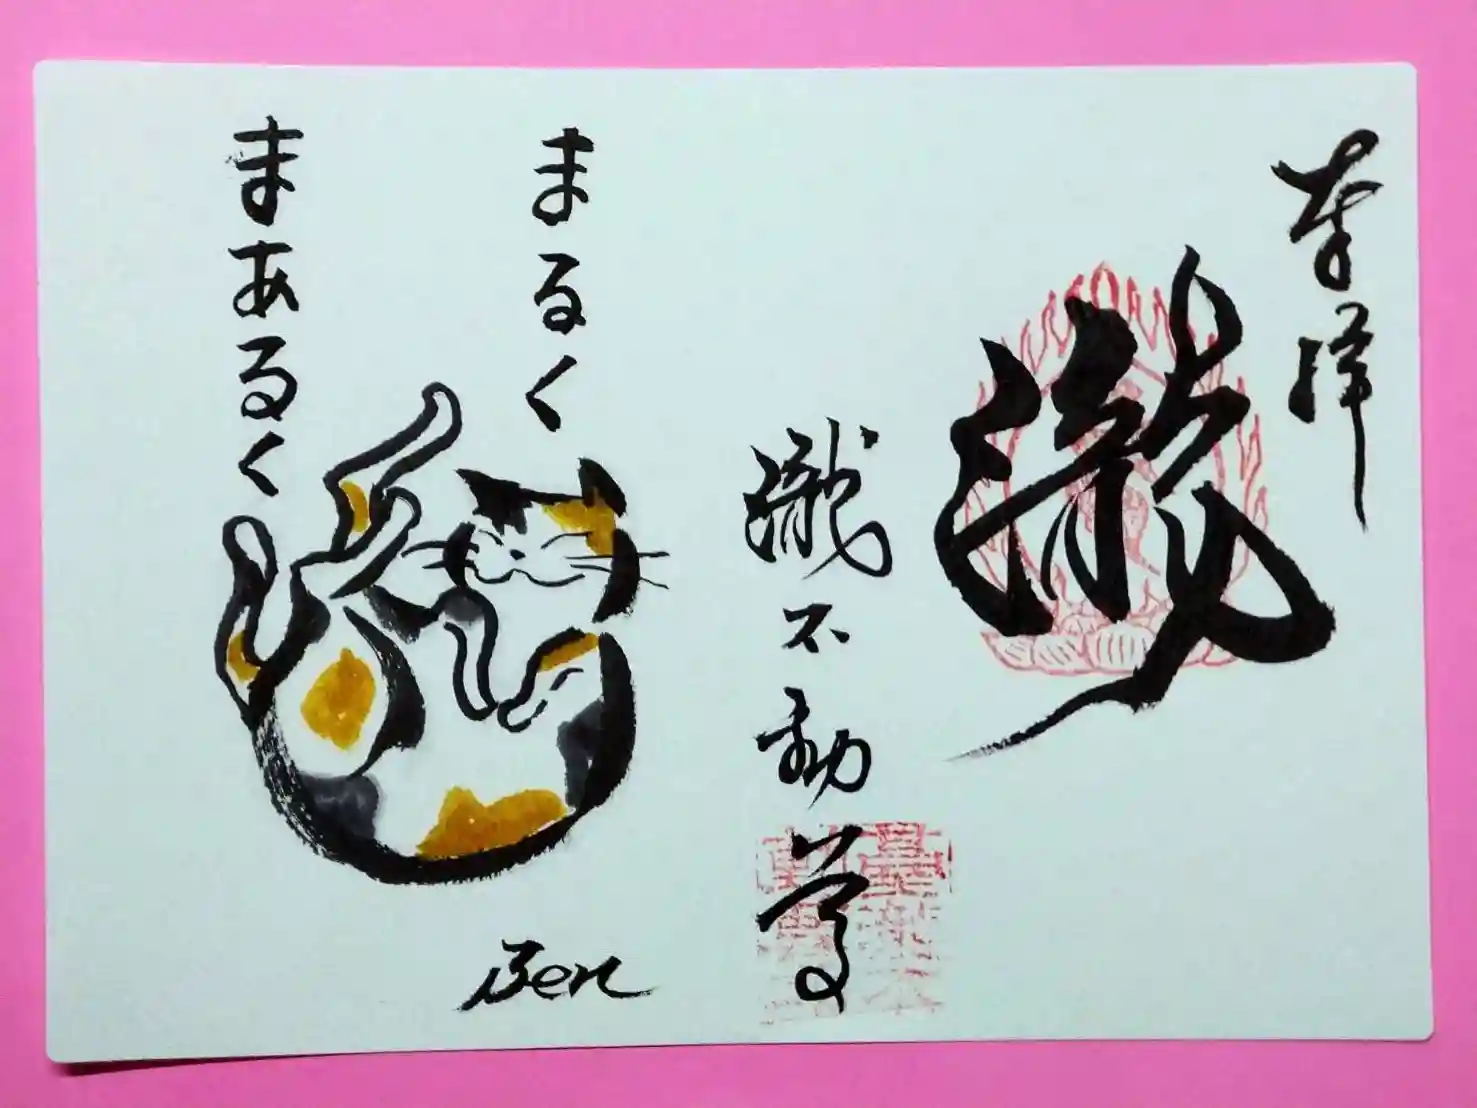 奉拝
瀧
瀧不動尊
まるく
まあるく
Ben